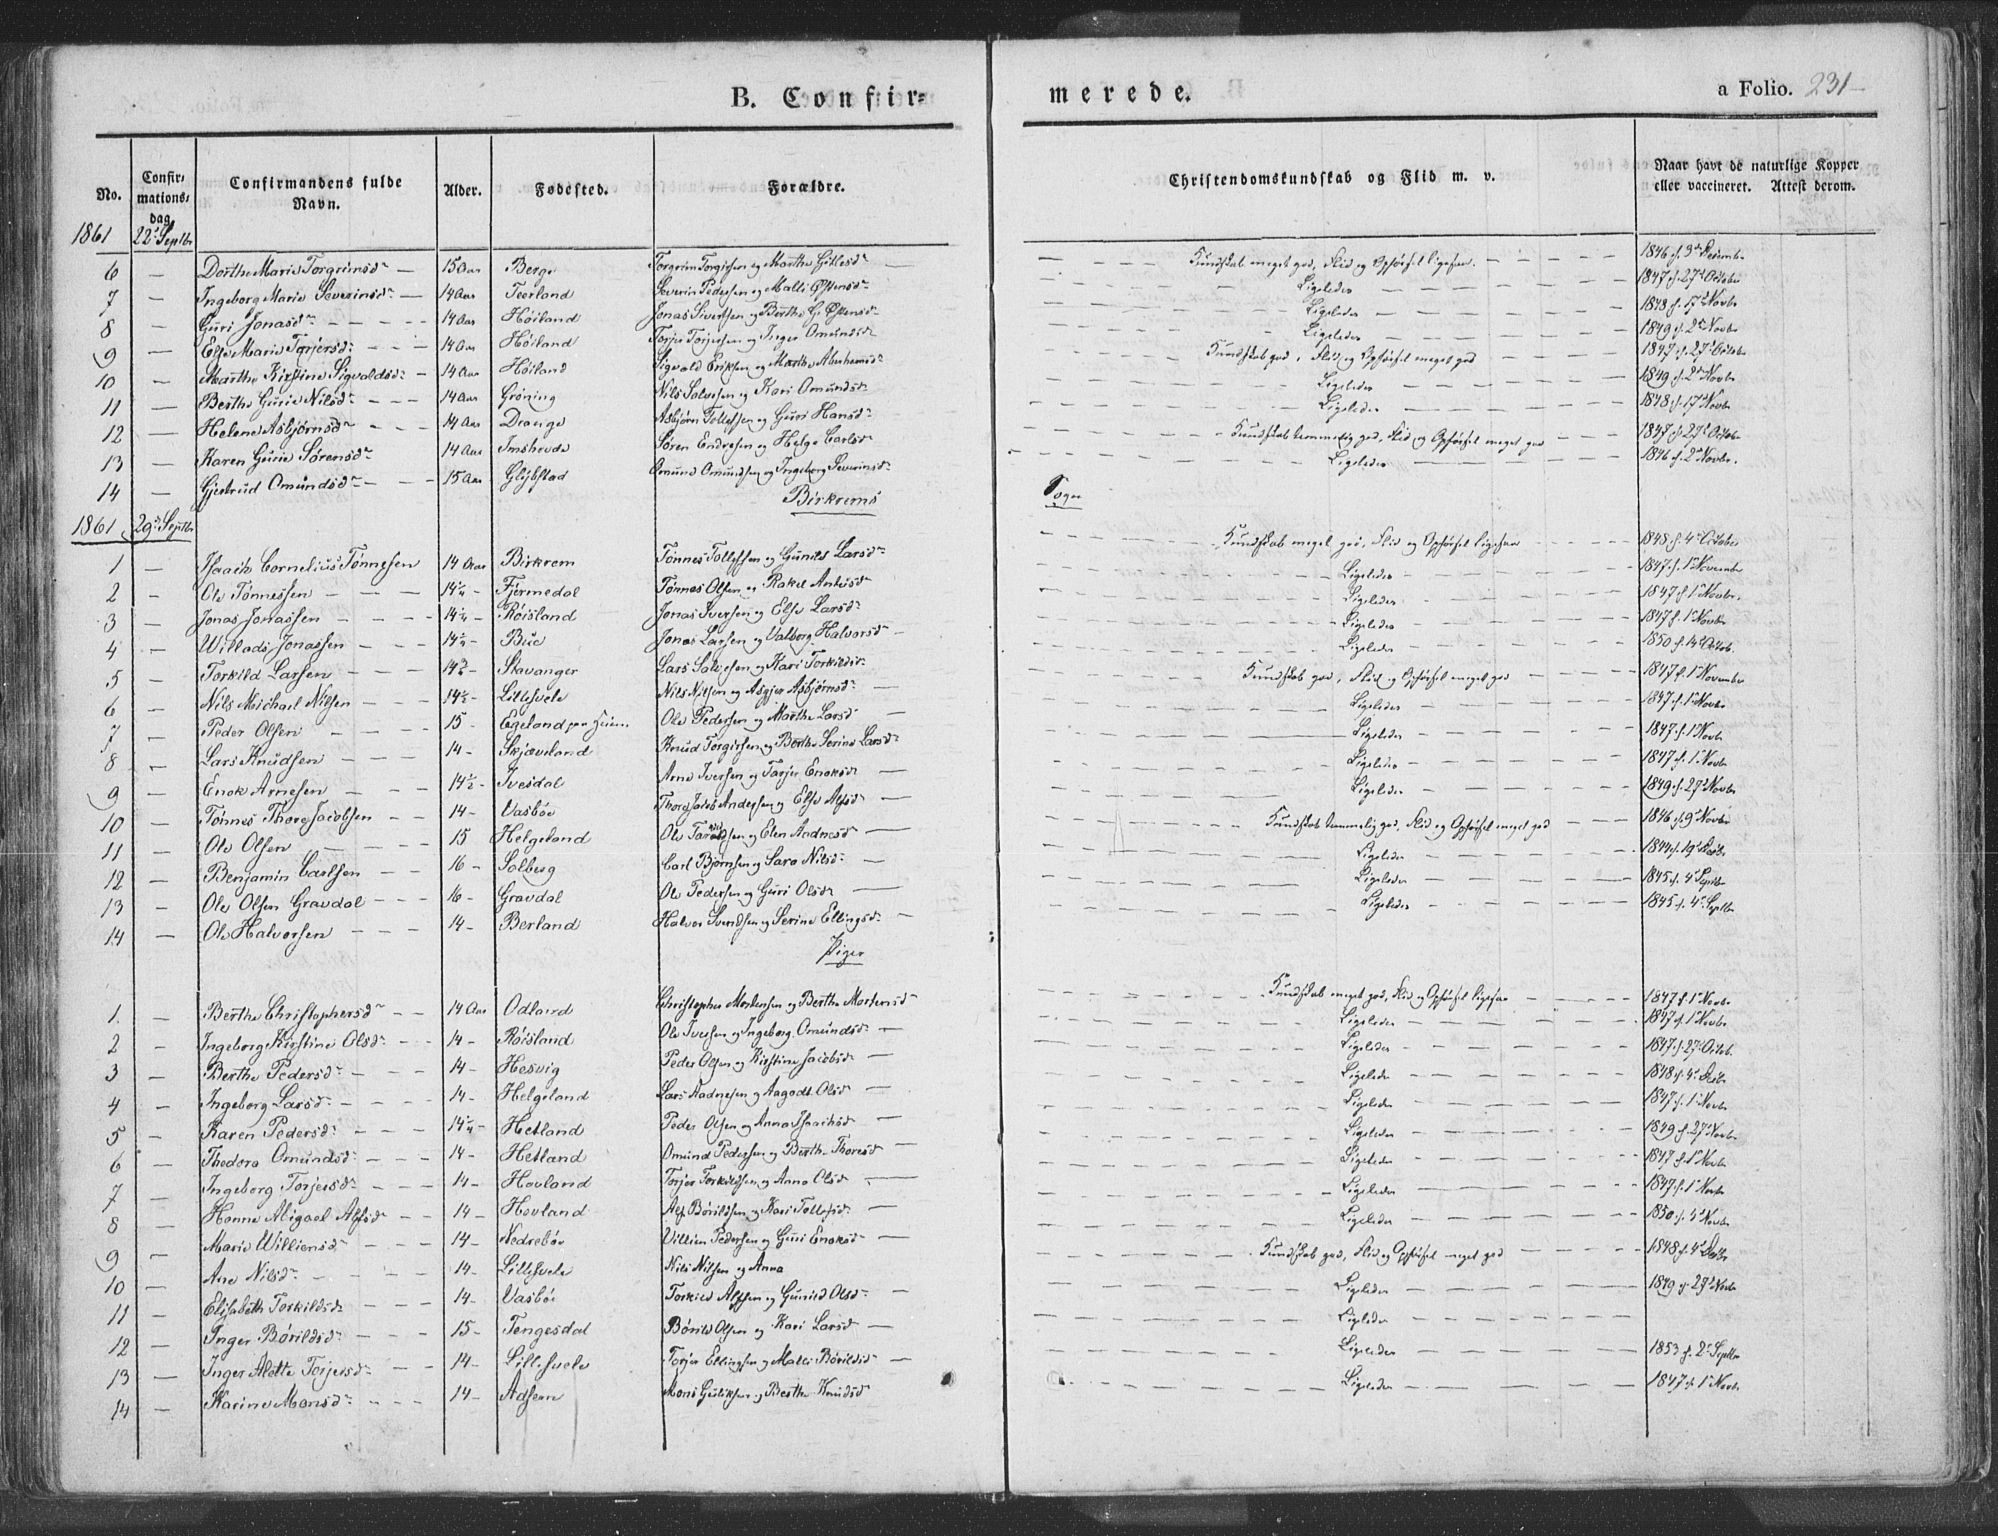 B. Confir=
merede.
a Folio. 231
No.
Confir=
mations=
dag
Confirmandens fulde
Navn.
Alder.
Fødested.
Forældre.
Christendomskundskab og Flid m. v.
Naar havt de naturlige Kopper
eller vaccineret. Attest derom.
1861 22de Septbr
6 — Dorthe Marie Torgrimsdr — 15 Aar Berge Torgrim Torgirsen og Marthe Gitlesdr — Kundskab meget god, Flid og Opførsel ligesaa. 1846 d. 3de Decembr
7 — Ingeborg Marie Severinsdr — 14 Aar Teerland Severin Pedersen og Malli Østensdr Ligeledes 1847 d. 27de Octobr
8 — Guri Jonasdr — 14 Aar Høiland Jonas Sivertsen og Berthe G. Østensdr Ligeledes 1848 d. 17de Novbr
9 — Else Marie Torjersdr — 14 Aar Høiland Torjer Torjersen og Inger Omundsdr Ligeledes 1849 d. 2de Novbr
10 — Marthe Kirstine Sigvaldsdr — 14 Aar Høiland Sigvald Eriksen og Marthe Abrahamsdr Kundskab god, Flid og Opførsel meget god 1847 d. 27de Octobr
11 — Berthe Gurie Nilsdr 14 Aar Grøning Nils Salvesen og Kari Omundsdr Ligeledes 1849 d. 2de Novbr
12 — Helene Asbjørnsdr — 14 Aar Drange Asbjørn Tollefsen og Guri Hansdr Ligeledes 1848 d. 17de Novbr
13 — Karen Gurie Sørensdr 14 Aar Imshovde Søren Endresen og Helge Carlsdr Kundskab temmelig god, Flid og Opførsel meget god 1847 d. 27de Octobr
14 — Gjertrud Omundsdr — 15 Aar Omund Omundsen og Ingeborg Severinsdr Ligeledes 1846 d. 2de Novbr.
Birkrems Sogn
1861 29de Septbr
1 — Isaach Cornelius Tønnesen 14 Aar Birkrem Tønnes Tollefsen og Gunild Larsdr Kundskab meget god, Flid og Opførsel ligesaa 1848 d. 4de Octobr
2 — Ole Tønnessen — 14¼ - Fjermedal Tønnes Olsen og Rakel Ligeledes 1847 d. 1ste Novembr
3 — Jonas Jonassen — 14¼ - Røisland Jonas Iversen og Else Larsdr Ligeledes 1847 d. 1ste Novbr.
4 — Willads Jonassen 14¼ - Bue Jonas Larsen og Valborg Halvorsdr — Ligeledes 1847 d. 1ste Novbr
5 — Torkild Larsen — 14¾ - Stavanger Lars Salvesen og Kari Torkildsdr Ligeledes 1850 d. 14de Octob.
6 — Nils Michael Nilsen — 14½ - Lillesvele Nils Nilsen og Asgjer Asbjørnsdr Kundskab god, Flid og Opførsel meget god 1847 d. 1ste Novembr
7 — Peder Olsen — 15 - Egeland paa Heien Ole Pedersen og Marthe Larsdr Ligeledes 1847 d. 1ste Novbr
8 — Lars Knudsen — 14 - Skjæveland Knud Torgirsen og Berthe Serine Larsdr Ligeledes 1847 d. 1ste Novbr
9 — Enok Arnesen — 14½ - Ivesdal Arne Iversen og Tarjer Enoksdr — Ligeledes 1847 d. 1ste Novbr
10 — Tønnes Thore Jacobsen — 14 - Vasbøe Thore Jacob Andersen og Else Alfsdr — Ligeledes 1849 d. 27de Novbr
11 — Ole Olsen — 15 Helgeland Ole og Elen Aadnesdr — Kundskab temmelig god, Flid og Opførsel meget god 1846 d. 9de Novbr
12 — Benjamin Carlsen — 16 - Solberg Carl Bjørnsen og Sara Nilsdr — Ligeledes 1844 d. 19de Decbr
13 — Ole Olsen Gravdal — 16 - Gravdal Ole Pedersen og Guri Olsdr — Ligeledes 1845 d. 4de Septbr
14 — Ole Halvorsen — 14 - Berland Halvor Svendsen og Serine Ellingsdr — Ligeledes 1845 d. 4de Septbr
Piger
1. — Berthe Christophersdr — 14 Aar Odland Christopher Mortensen og Berthe Mortensdr Kundskab meget god, Flid og Opførsel ligesaa 1847 d. 1ste Novbr
2 — Ingeborg Kirstine Olsdr — 14 - Røisland Ole Iversen og Ingeborg Omundsdr — Ligeledes 1847 d. 1ste Novbr
3 — Berthe Pedersdr — 14 - Hesvig Peder Olsen og Kirstine Jacobsdr — Ligeledes 1847 d. 27de Octob.
4 — Ingeborg Larsdr — 14 - Helgeland Lars Aadnesen og Aagodt Olsdr — Ligeledes 1848 d. 4de Decbr
5 — Karen Pedersdr — 14¼ - Hetland Peder Olsen og Anna Isaachsdr — Ligeledes 1847 d. 1ste Novbr
6 — Thodora Omundsdr — 14 - Hetland Omund Pedersen og Berthe Thoresdr Ligeledes 1849 d. 27de Novbr
7 — Ingeborg Torjersdr — 14 - Hovland Torjer Torkildsen og Anna Olsdr — Ligeledes 1847 d. 1ste Novbr
8 — Hanne Abigael Alfsdr — 14 - Hovland Alf Børildsen og Kari Tollefsdr — Ligeledes 1847 d. 1ste Novbr
9 — Marie Williensdr 14 - Nedrebøe Villien Pedersen og Guri Enoksdr — Ligeledes 1850 d. 5te Novbr
10 — Ane Nilsdr — 14 - Lillesvele Nils Nilsen og Anna Kundskab god, Flid og Opførsel meget god 1848 d. 4de Decbr
11 — Elisabeth Torkildsdr 14 - Vasbøe Torkild Alfsen og Gunild Olsdr — Ligeledes 1849 d. 27de Novbr
12 — Inger Børildsdr — 15 - Tengesdal Børild Olsen og Kari Larsdr — Ligeledes
13 — Inger Alette Torjersdr — 14 - Lillesvele Torjer Ellingsen og Malli Børildsdr — Ligeledes 1853 d. 2de Septbr
14 — Karine Monsdr — 14 - Adseen Mons Guliksen og Berthe Knudsdr Ligeledes 1847 d. 1ste Novbr